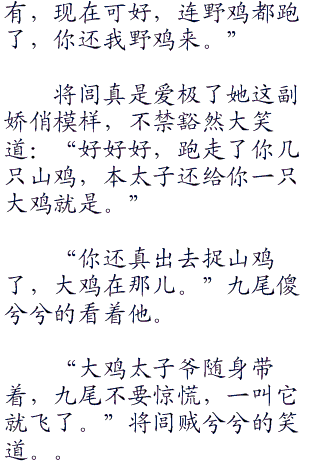 有，现在可好，连野鸡都跑
了，你还我野鸡来。”
将闾真是爱极了她这副
娇俏模样，不禁豁然大笑
道：“好好好，跑走了你几
只山鸡，本太子还给你一只
大鸡就是。”
“你还真出去捉山鸡
了，大鸡在那儿。”九尾傻
兮兮的看着他。
“大鸡太子爷随身带
着，九尾不要惊慌，一叫它
就飞了。”将闾贼兮兮的笑
道。。